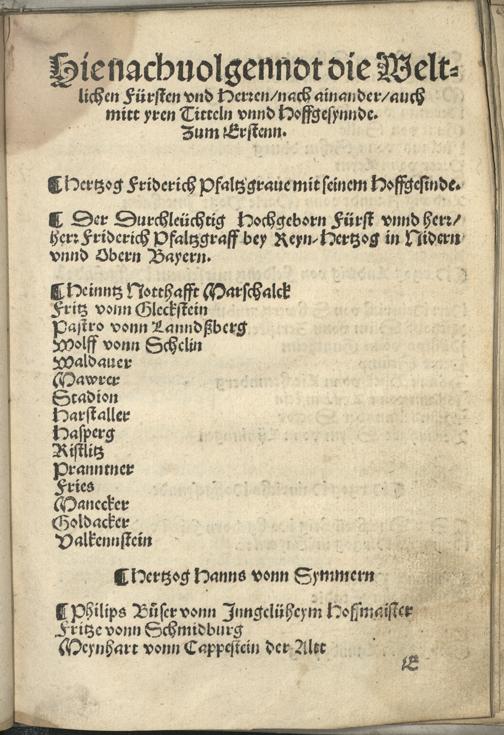 Hienachuolgenndt die Welt⸗
lichen Fürsten vnd Herren/nach ainander/auch
mitt yren Titteln vnnd Hoffgesynnde.
Zum Erstenn.
¶ Hertzog Friderich Pfaltzgraue mit seinem Hoffgesinde.
¶ Der Durchleüchtig Hochgeborn Fürst vnnd herr/
herr Friderich Pfaltzgraff bey Reyn⸗Hertzog in Nidern
vnnd Obern Bayern.
¶ Heinntz Notthafft Marschalck
Fritz vonn Gleckstein
Pastro vonn Lanndßberg
Wolff vonn Schelin
Waldauer
Mawrer
Stadion
Harstaller
Hasperg
Ristlitz
Pranntner
Fries
Manecker
Goldacker
Valkennstein
¶ Hertzog Hanns vonn Symmern
¶ Philips Büser vonn Jnngelüheym Hoffmaister
Fritze vonn Schmidburg
Meynhart vonn Cappestein der Altt
E